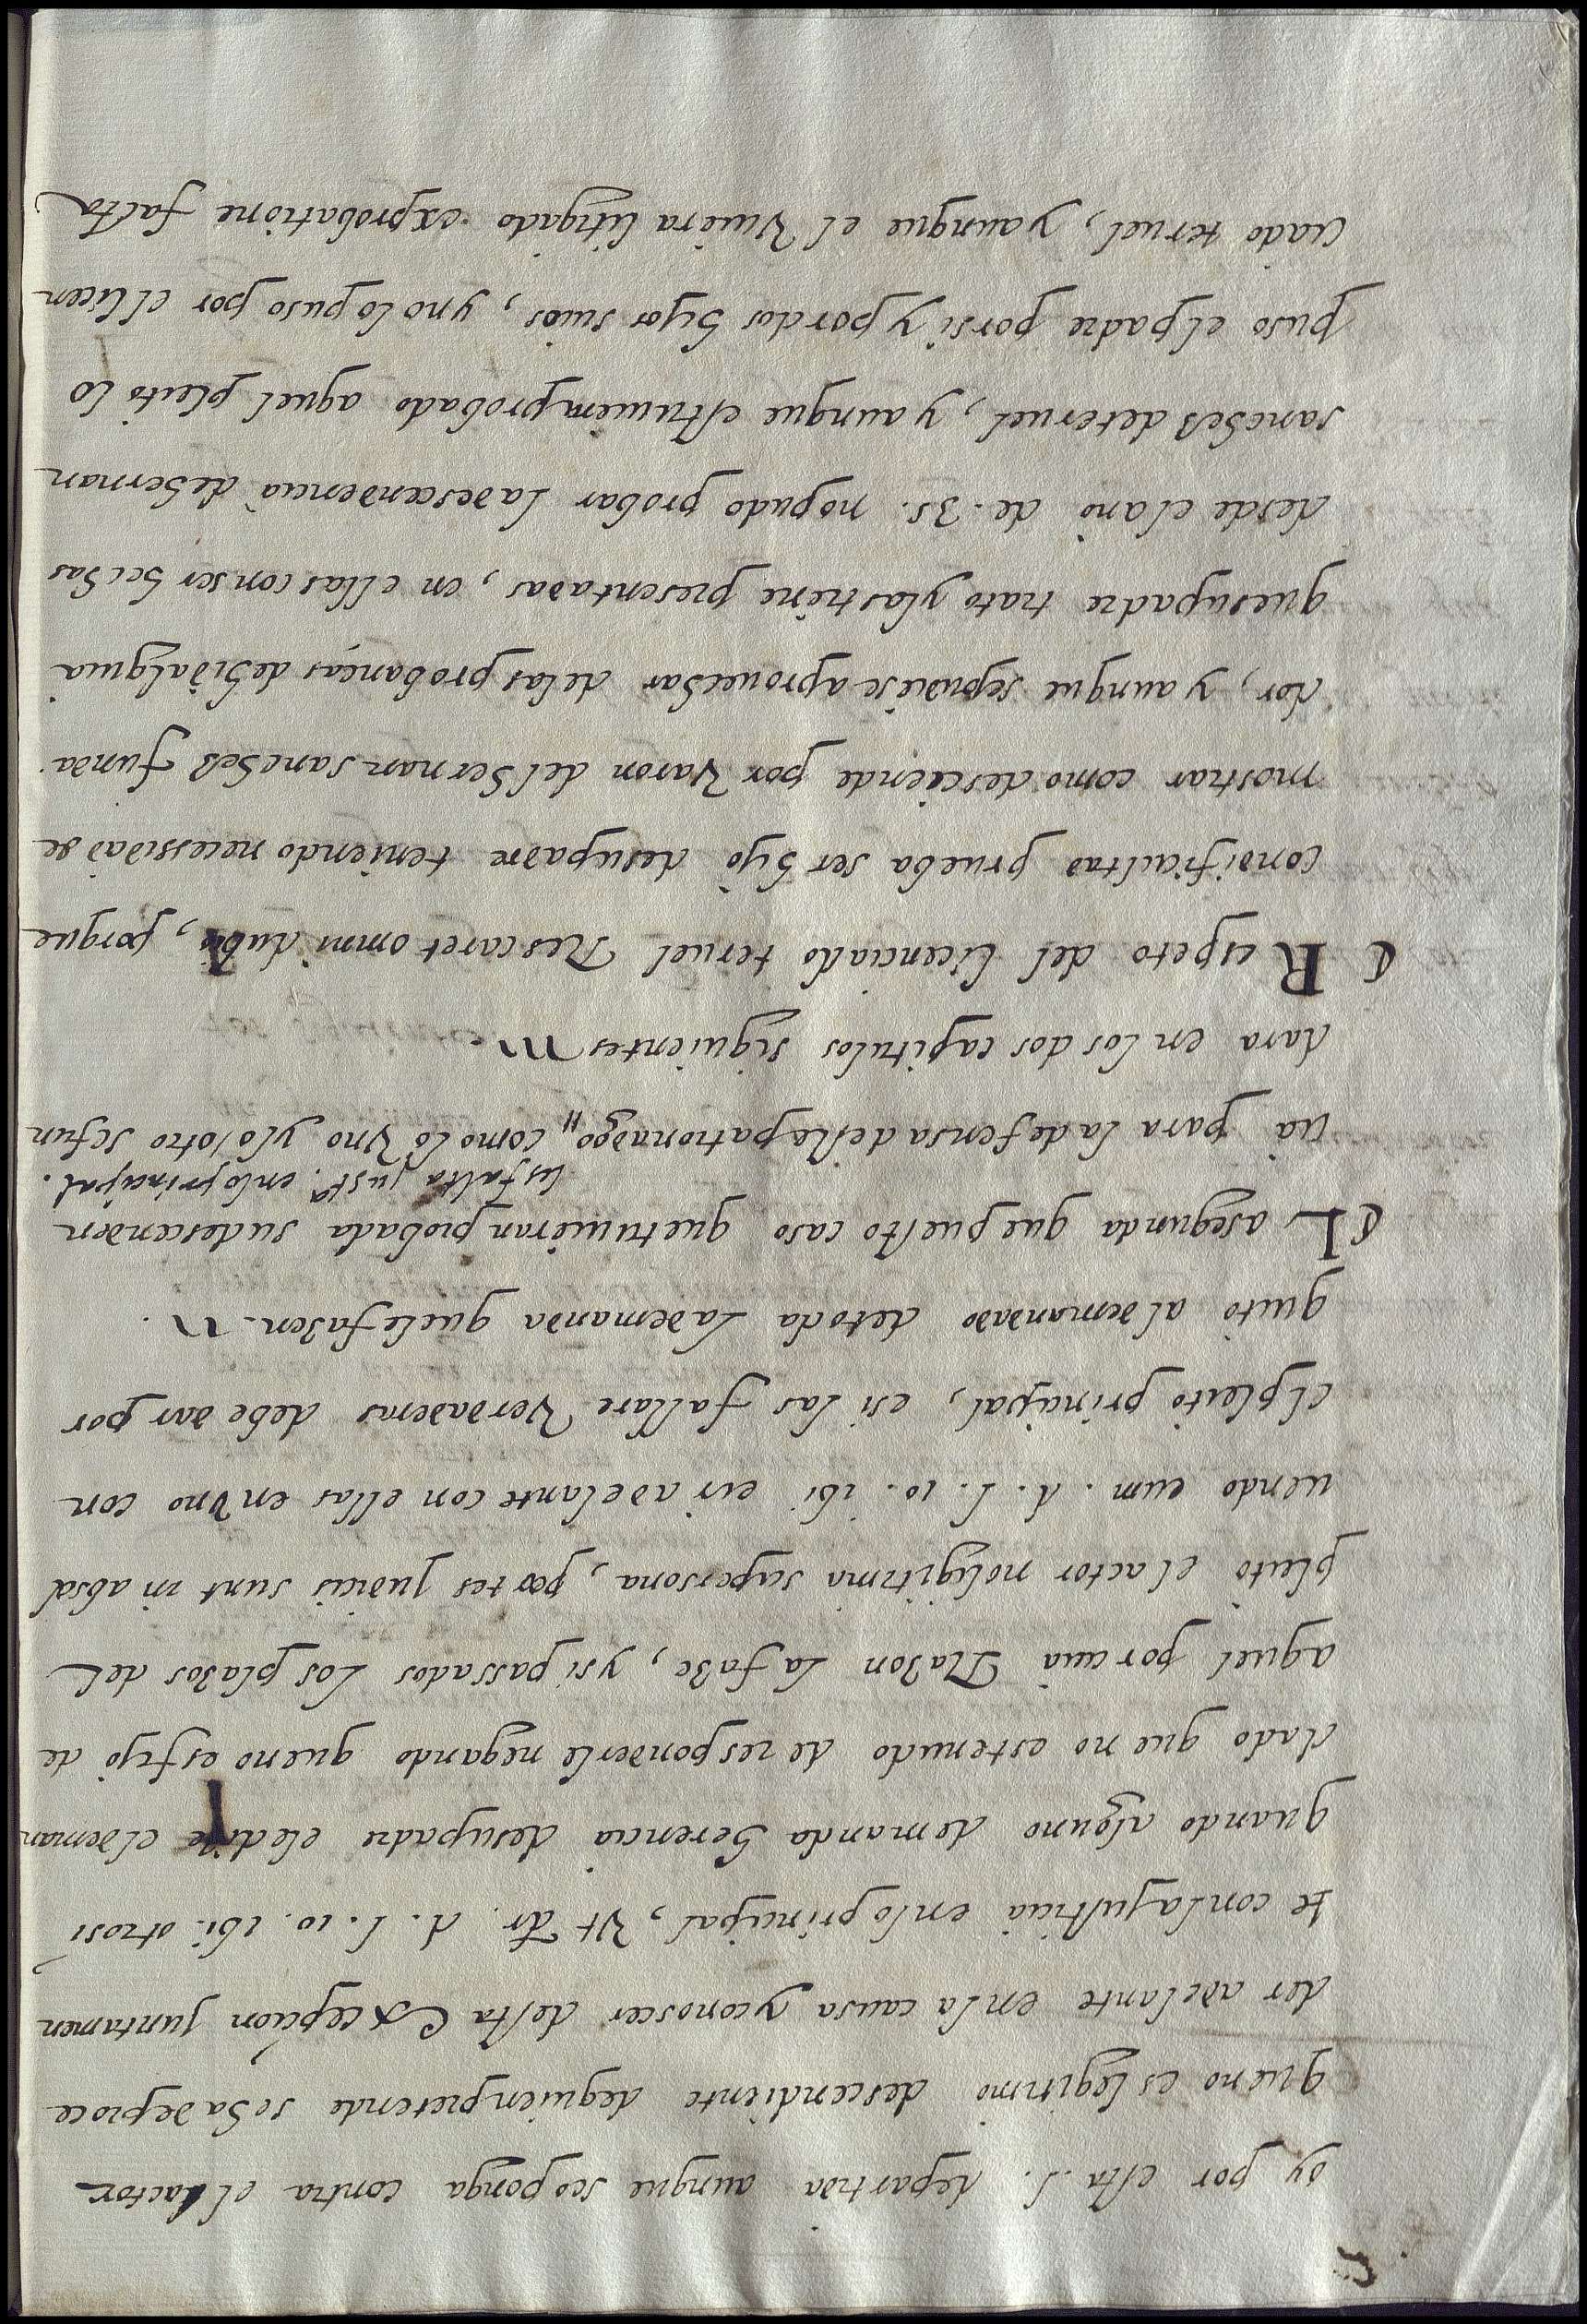 oy por esta l. departida aunque seoponga contra el actor
que no es legitimo descendiente dequien pretende seha deproce
der adelante en la causa y conoscer desta excepcion juntamen
te con la justicia en lo principal, Vt dr. d. l. 10. ibi. otrosi
quando alguno demanda herencia desupadre eledize eldeman
dado que no estenudo de responderle negando que no es fijo de
aquel por cuia Razon la faze, y si passados los plazos del
pleito el actor nolegitima supersona, partes Judicis sunt in absol
uendo eum. d. l. 10. ibi eir adelante con ellas en Vno con
el pleito principal, esi las fallare Verdaderas debe dar por
quito al demandado detoda la demanda quele fazen.
La segunda que puesto caso que tuuieran probada su descenden
les falta justa en lo principal.
cia para la defensa deste patronadgo" como lo Vno y lo otro se fun
dara en los dos capitulos siguientes
Respeto del licenciado teruel Res caret omni dubio, porque
condificultad prueba ser hijo desupadre teniendo necessidad de
mostrar como desciende por Varon del hernan sanches funda
dor, y aunque sepudiese aprouechar delas probanças dehidalguia
quesupadre trato y las tiene presentadas, en ellas con ser hechas
desde el año de .35. nopudo probar la descendencia dehernan
sanches deteruel, y aunque estuuiera probado aquel pleito lo
puso el padre por si y por dos hijos suios, y no lo puso por el licen
ciado teruel, y aunque el Vuiera litigado ex probatione facta